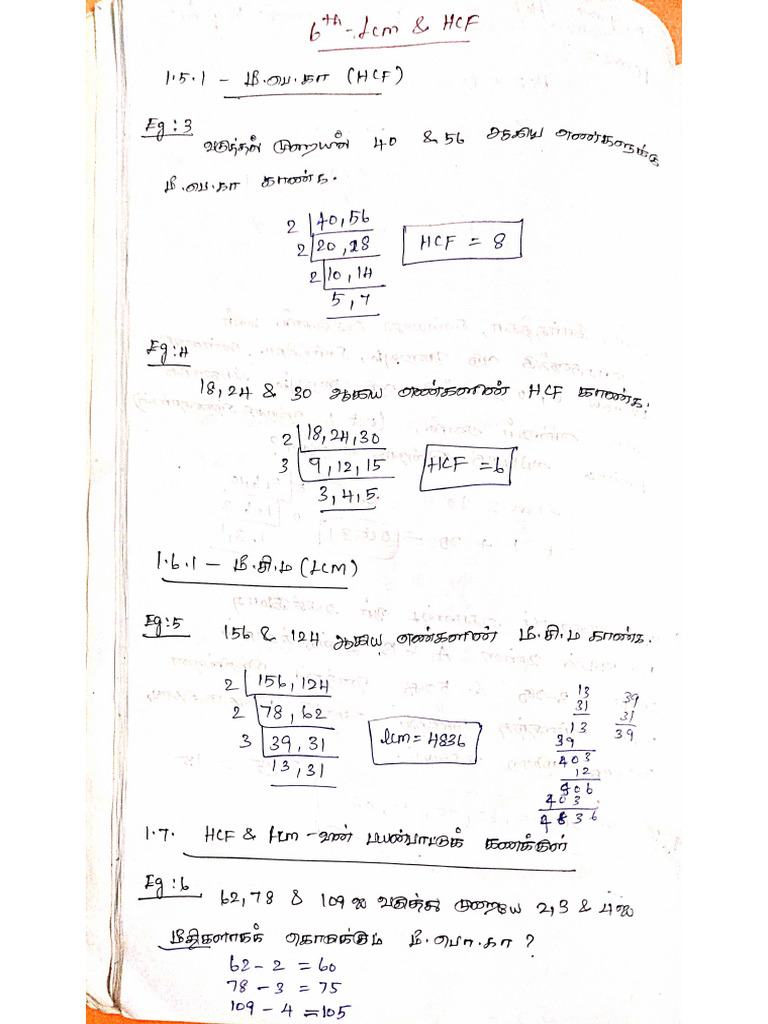 6th - Lcm & HCF
1.5.1 - மீ.பெ.கா (HCF)
Eg:3
வகுத்தல் முறையின் 40 & 56 ஆகிய எண்களுக்கு
மீ.பெ.கா காண்க.
2 | 40, 56
2 | 20, 28
2 | 10, 14
5, 7
HCF = 8
Eg:4
18, 24 & 30 ஆகிய எண்களின் HCF காண்க.
2 | 18, 24, 30
3 | 9, 12, 15
3, 4, 5.
HCF = 6
1.6.1 - மீ.சி.ம (Lcm)
Eg:5
156 & 124 ஆகிய எண்களின் மீ.சி.ம காண்க.
2 | 156, 124
2 | 78, 62
3 | 39, 31
13, 31
Lcm = 4836
13
31
13
39
403
12
406
403
4836
39
31
39
1.7. HCF & Lcm - ன் பயன்பாட்டுக் கணக்குகள்
Eg:6
62, 78 & 109 ஐ வகுத்து முறையே 2, 3 & 4 ஐ
மீதிகளாகக் கொடுக்கும் மீ.பொ.கா ?
62 - 2 = 60
78 - 3 = 75
109 - 4 = 105